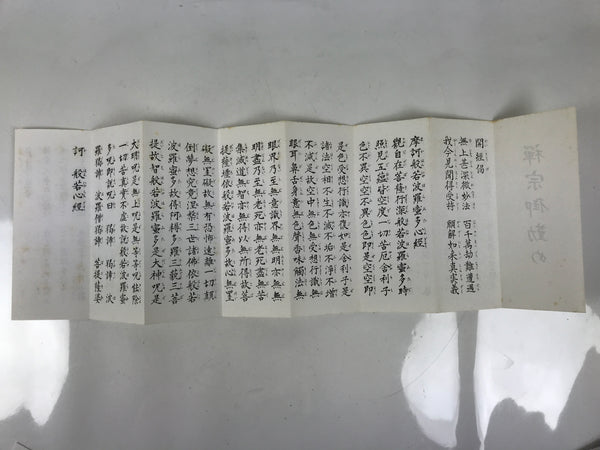 禪宗御勤め
開経偈
無上甚深微妙法 百千萬劫難遭遇
我今見聞得受持 願解如来真實義
摩訶般若波羅蜜多心經
觀自在菩薩行深般若波羅蜜多時
照見五蘊皆空度一切苦厄舎利子
色不異空空不異色色即是空空即
是色受想行識亦復如是舎利子是
諸法空相不生不滅不垢不淨不增
不減是故空中無色無受想行識無
眼耳鼻舌身意無色聲香味觸法無
眼界乃至無意識界無無明亦無無
明盡乃至無老死亦無老死盡無苦
集滅道無智亦無得以無所得故菩
提薩埵依般若波羅蜜多故心無罣
礙無罣礙故無有恐怖遠離一切顛
倒夢想究竟涅槃三世諸佛依般若
波羅蜜多故得阿耨多羅三藐三菩
提故知般若波羅蜜多是大神呪是
大明呪是無上呪是無等等呪能除
一切苦真實不虛故説般若波羅蜜
多呪即説呪曰 羯諦 羯諦 波
羅羯諦 波羅僧羯諦 菩提薩婆
訶 般若心經